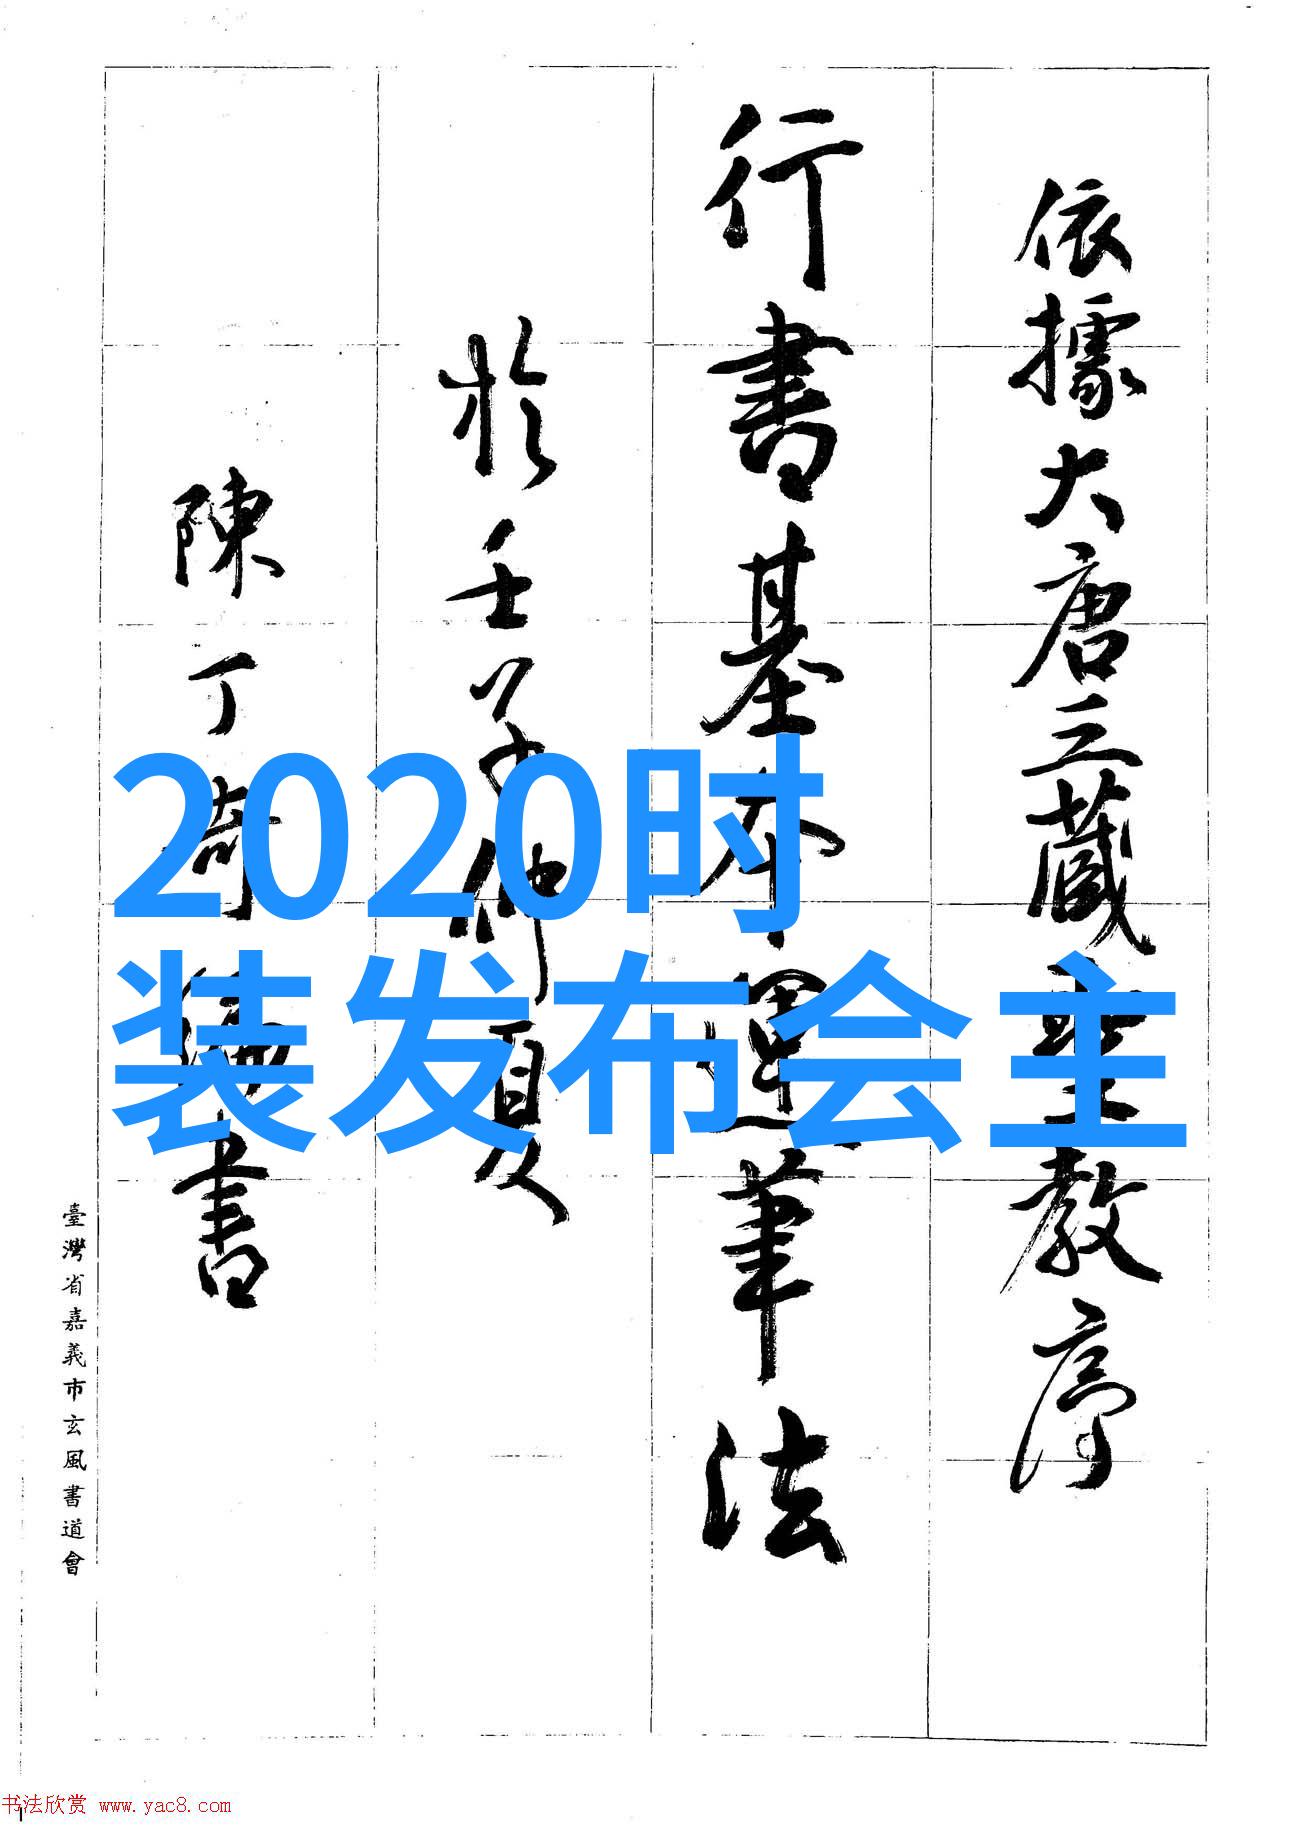 依據大唐三藏聖教序
行書基本運筆法
於壬子仲夏
陳丁奇編書
臺灣省嘉義市玄風書道會
2020时
装发布会主
书法欣赏 www.yac8.com
1